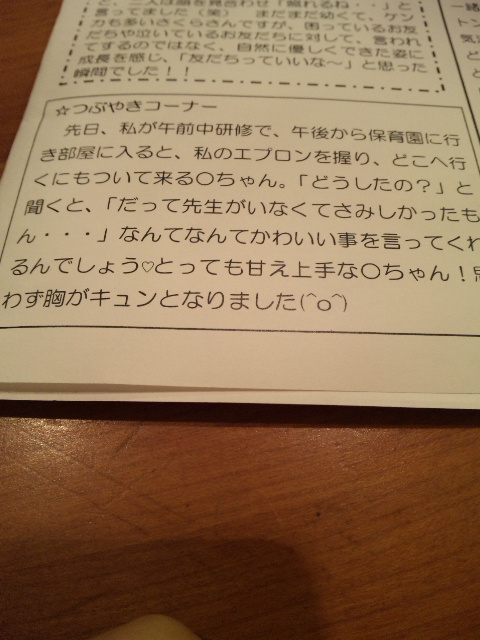 と、二人は顔を見合わせ「照れるね・・」と
言ってました(笑) まだまだ幼くて、ケン
カも多いさくらさんですが、困っているお友
だちや泣いているお友だちに対して、言われ
てするのではなく、自然に優しくできた姿に
成長を感じ、「友だちっていいな~」と思った
瞬間でした!!
☆つぶやきコーナー
先日、私が午前中研修で、午後から保育園に行
き部屋に入ると、私のエプロンを握り、どこへ行
くにもついて来る〇ちゃん。「どうしたの?」と
聞くと、「だって先生がいなくてさみしかったも
ん・・・」なんてなんてかわいい事を言ってくれ
るんでしょう♡とっても甘え上手な〇ちゃん!思
わず胸がキュンとなりました(^o^)
一緒
トン